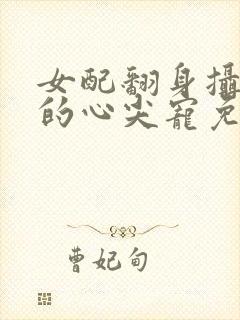 女配翻身攝
的心尖寵免
曹妃甸